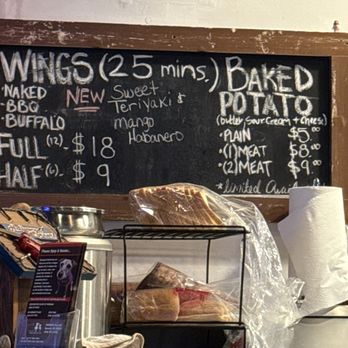 WINGS (25 mins.)
•NAKED
•BBQ
•BUFFALO
NEW Sweet
Teriyaki &
mango
Habanero
FULL (12)- $18
HALF (6)- $9
BAKED
POTATO
(butter, Sour Cream + Cheese)
•PLAIN $5.00
•(1)MEAT $8.00
•(2)MEAT $9.00
*limited